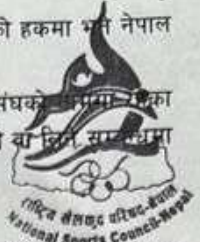 को हकमा भने नेपाल
संघको
वा लिने सम्बन्धमा
राष्ट्रिय खेलकुद परिषद-नेपाल
National Sports Council-Nepal